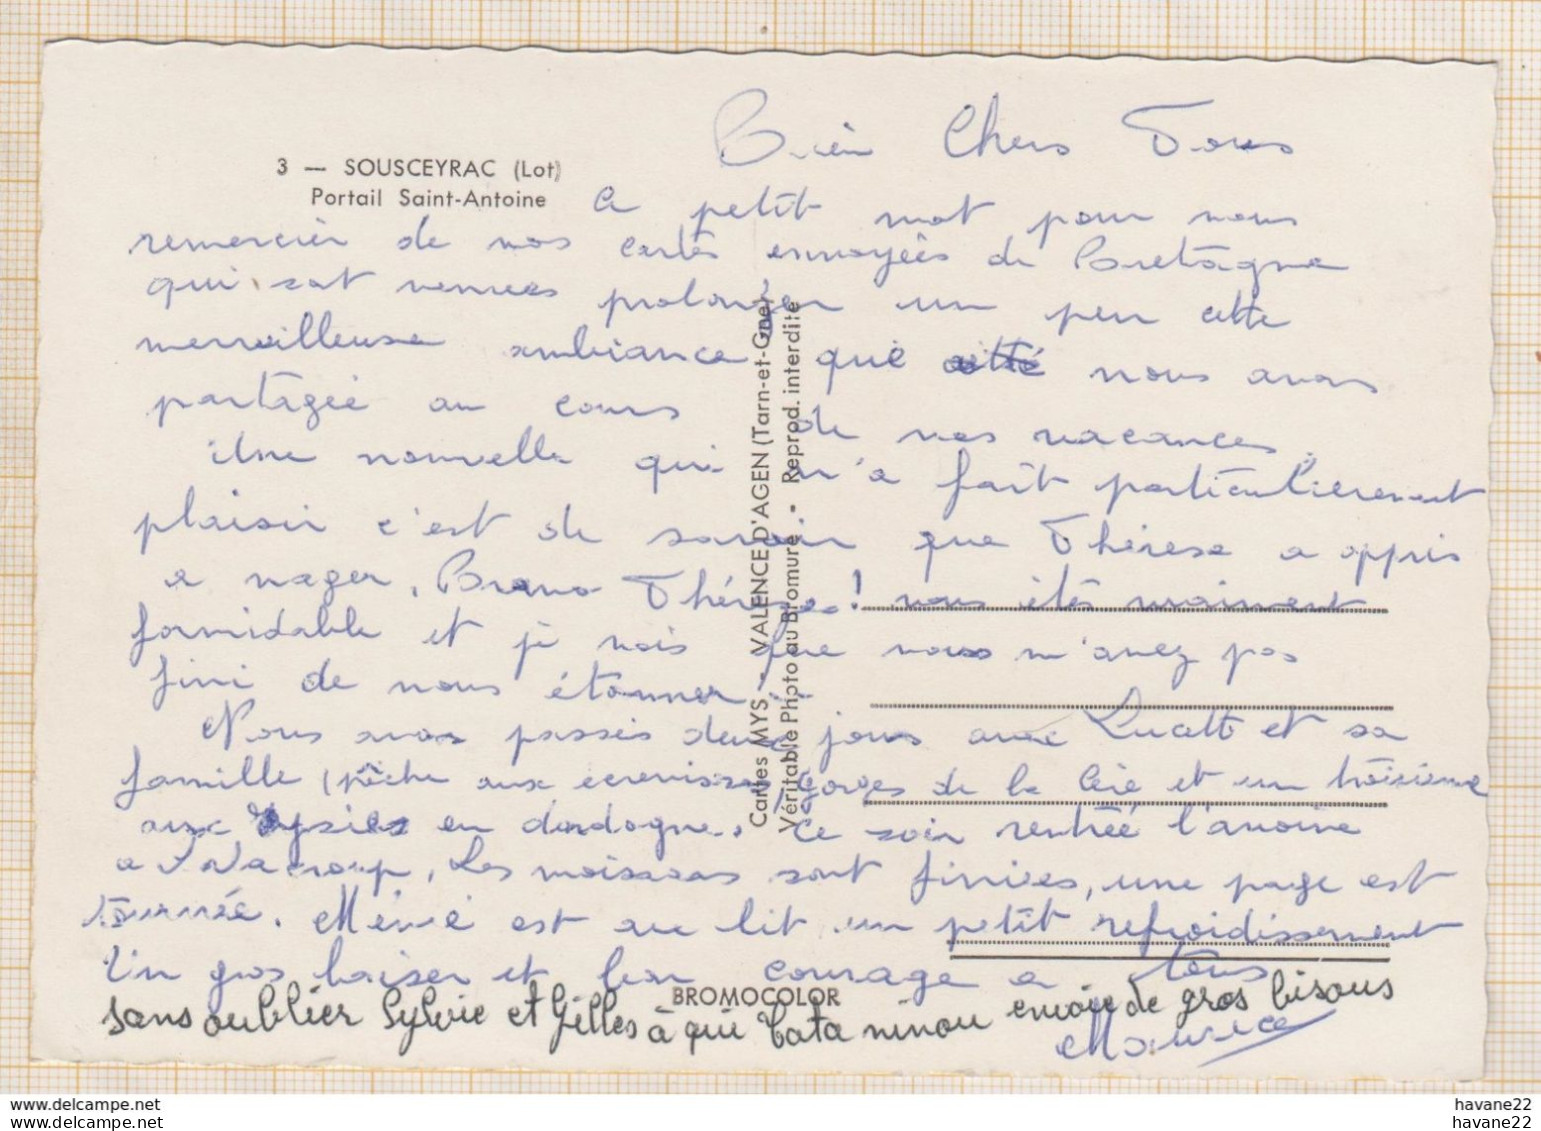 3 — SOUSCEYRAC (Lot)
Portail Saint-Antoine
Bien Chers Tous
Ce petit mot pour vous
remercier de vos cartes envoyées de Bretagne
qui sont venues prolonger un peu cette
merveilleuse ambiance que nous avons
partagée au cours de nos vacances.
Une nouvelle qui m'a fait particulièrement
plaisir c'est de savoir que Thérèse a appris
a nager. Bravo Thérèse! vous êtes vraiment
formidable et je vois que vous n'avez pas
fini de nous étonner!
Nous avons passés deux jours avec Lucette et sa
famille (pêche aux écrevisses, gorges de la Cère et un troisième
aux Eyzies en dordogne. Ce soir rentrée
a Les moissons sont finies, une page est
tournée. Mémé est au lit un petit refroidissement
Un gros baiser et bon courage a tous
sans oublier Sylvie et Gilles à qui tata ninou envoie de gros bisous
Maurice
Cartes MYS - VALENCE D'AGEN (Tarn-et-Gne)
Véritable Photo au Bromure • Reprod. interdite
BROMOCOLOR
www.delcampe.net
www.delcampe.net
havane22
havane22